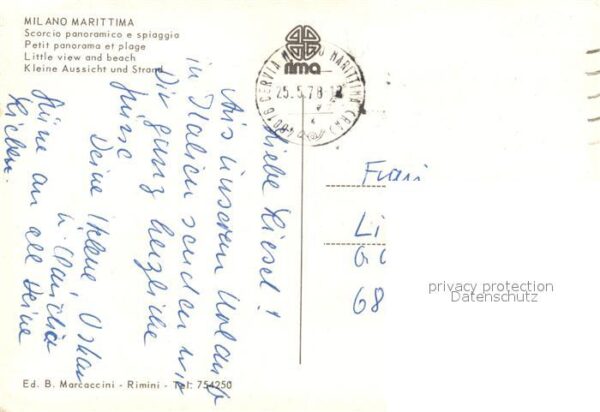 MILANO MARITTIMA
Scorcio panoramico e spiaggia
Petit panorama et plage
Little view and beach
Kleine Aussicht und Strand
rima
48016 CERVIA MILANO MARITTIMA (RA)
25.5.78-12
Liebe Liesel!
Aus unserem Urlaub
in Italien senden wir
Dir ganz herzliche
Grüße
Deine Helene Oskar
u. Claudia
Grüße an all Deine
Lieben.
Frau
Li
68
privacy protection
Datenschutz
Ed. B. Marcaccini - Rimini - Tel: 754250